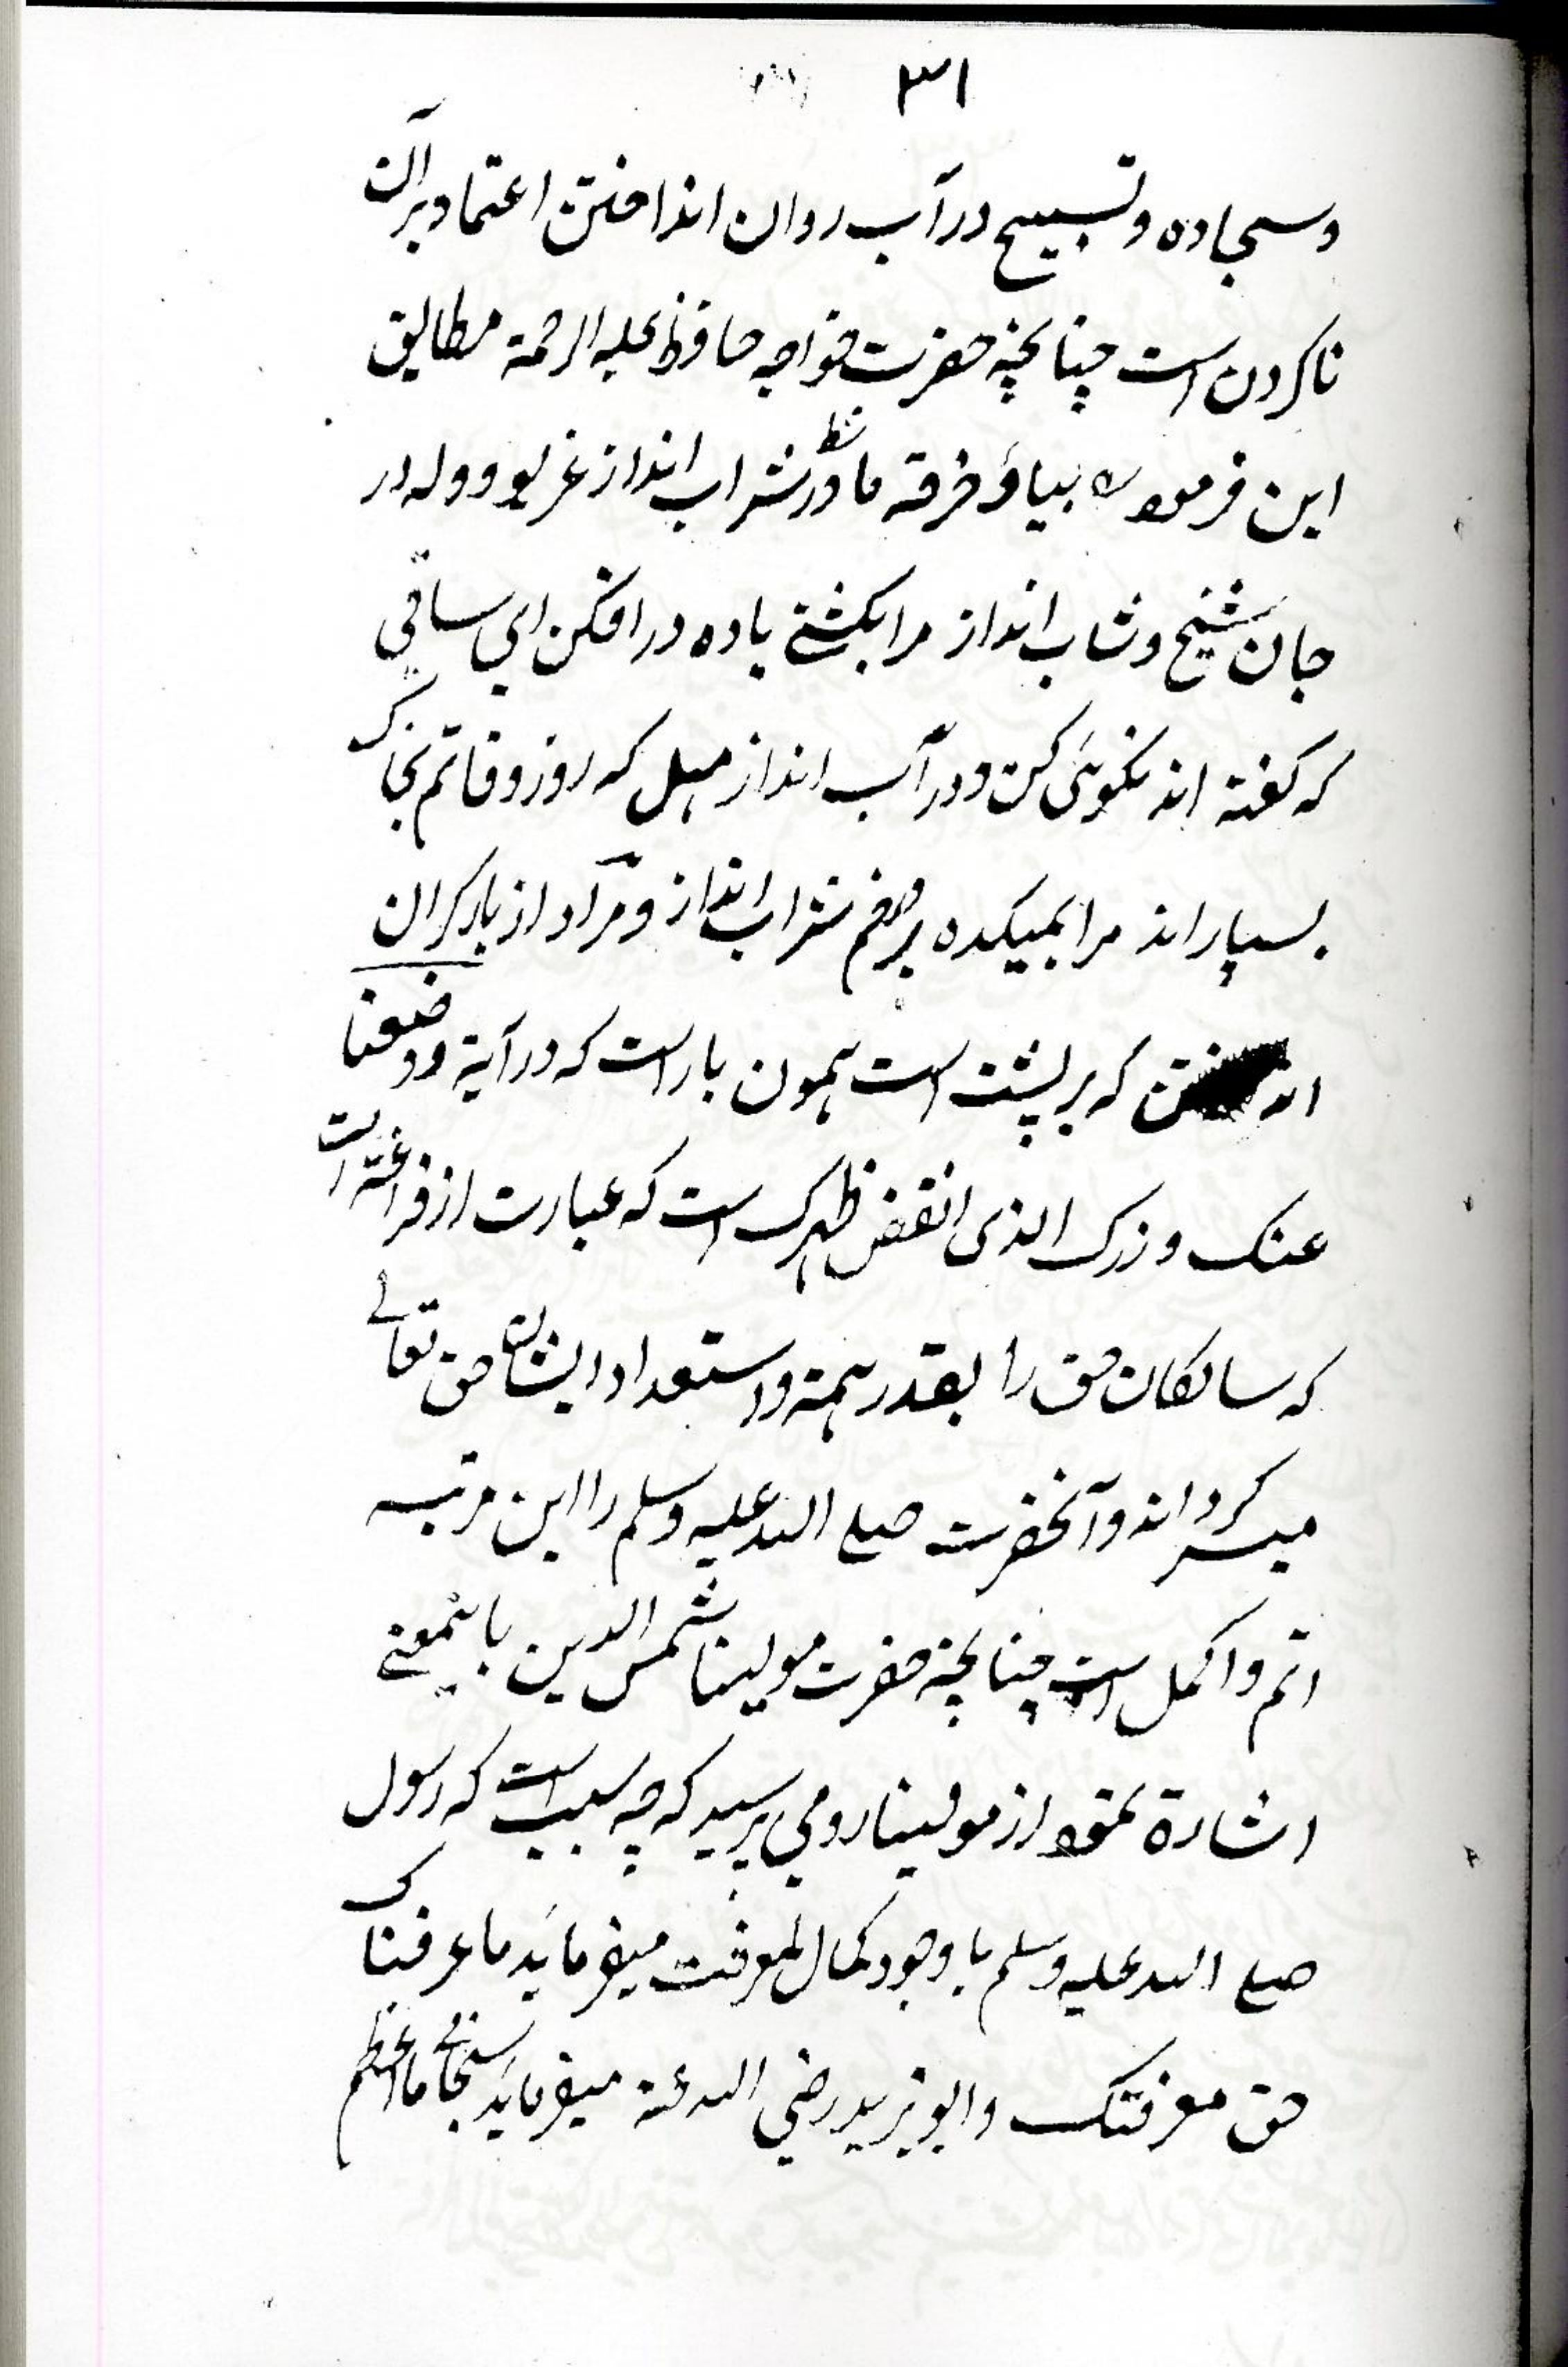 ۳۱
وسجاده وتسبیح در آب روان انداختن اعتماد بر آن
ناکردن است چنانچه حضرت خواجه حافظ علیه الرحمة مطابق
این فرموده بیا و خرقه ما در شط شراب انداز غریو و وله در
جان شیخ و شاب انداز مرا بکشتی باده در افکن ای ساقی
که گفته اند نکوئی کن و در آب انداز مهل که روز وفاتم بخاک
بسپارند مرا بمیکده بر در خم شراب انداز و مراد از بار کران
که بر پشت است همون بار است که در آیة ووضعنا
عنک وزرک الذی انقض ظهرک است که عبارت از است
که سالکان حق را بقدر همة و استعداد ایشان حق تعالی
میسر کرداند و آنحضرت صلی الله علیه وسلم را این مرتبه
اتم و اکمل است چنانچه حضرت مولینا شمس الدین باینمعنے
اشارة نمود از مولینا رومی پرسید که چه سبب است که رسول
صلی الله علیه وسلم با وجود کمال المعرفت میفرماید ما عرفناک
حق معرفتک و ابو یزید رضی الله عنه میفرماید سبحانی ما اعظم